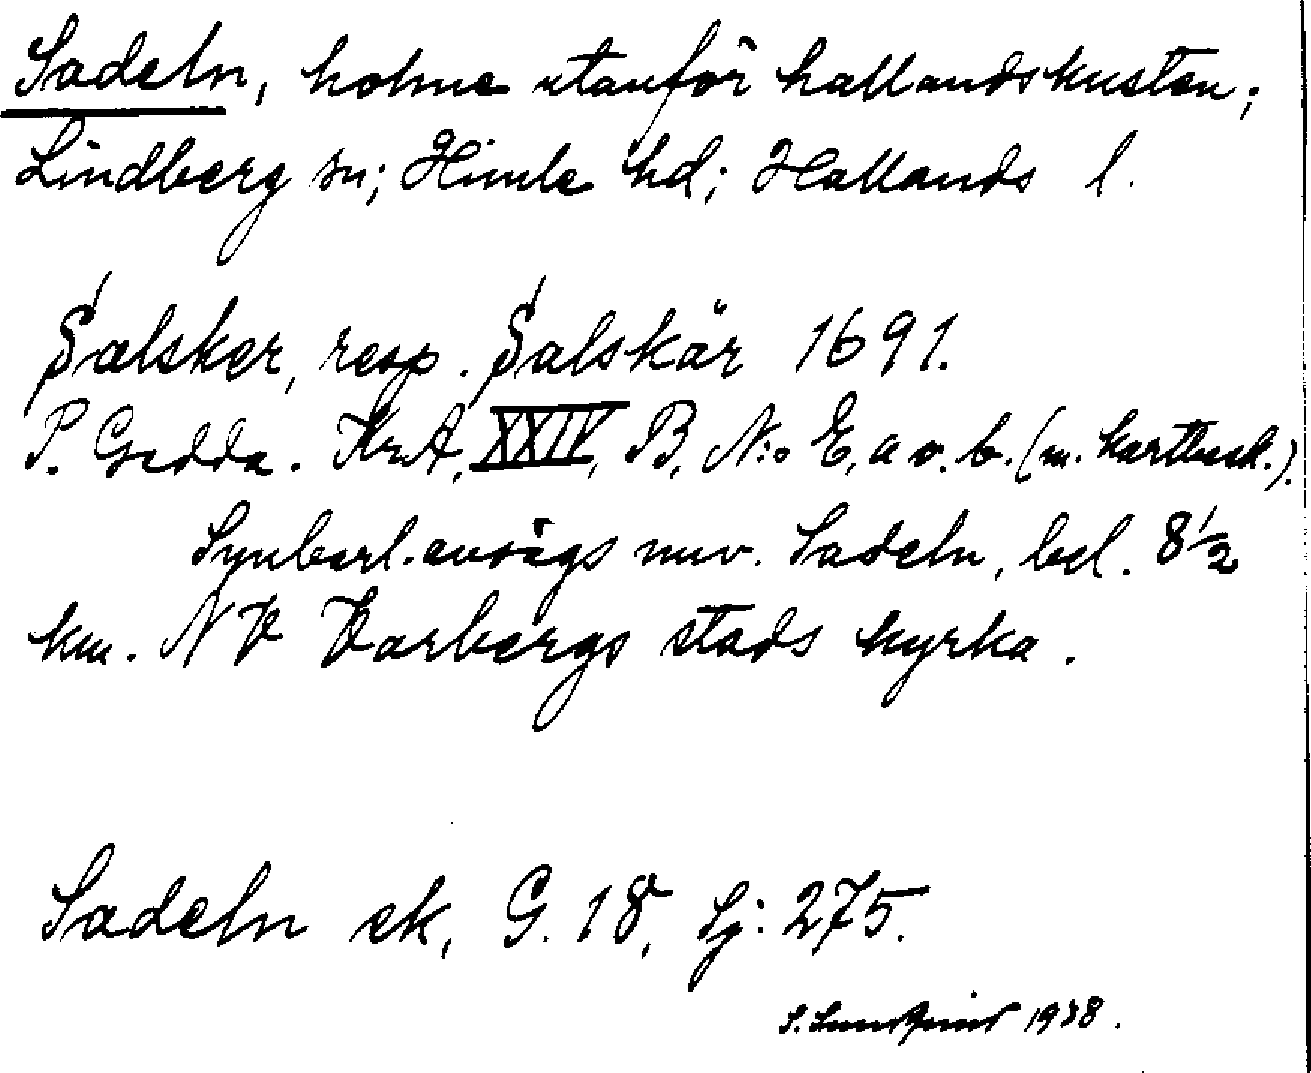 Sadeln, holme utanför hallandskusten;
Lindberg sn; Himle hd; Hallands l.
Salsker, resp. Salskär 1691.
P. Gedda. KrA, XXIV, B, N:o E, a o. b. (m. kartbesk.).
Synbarl. avsägs nuv. Sadeln, bel. 8 1/2
km. NV Varbergs stads kyrka.
Sadeln ek, G. 18, Sj: 275.
S. 1938.